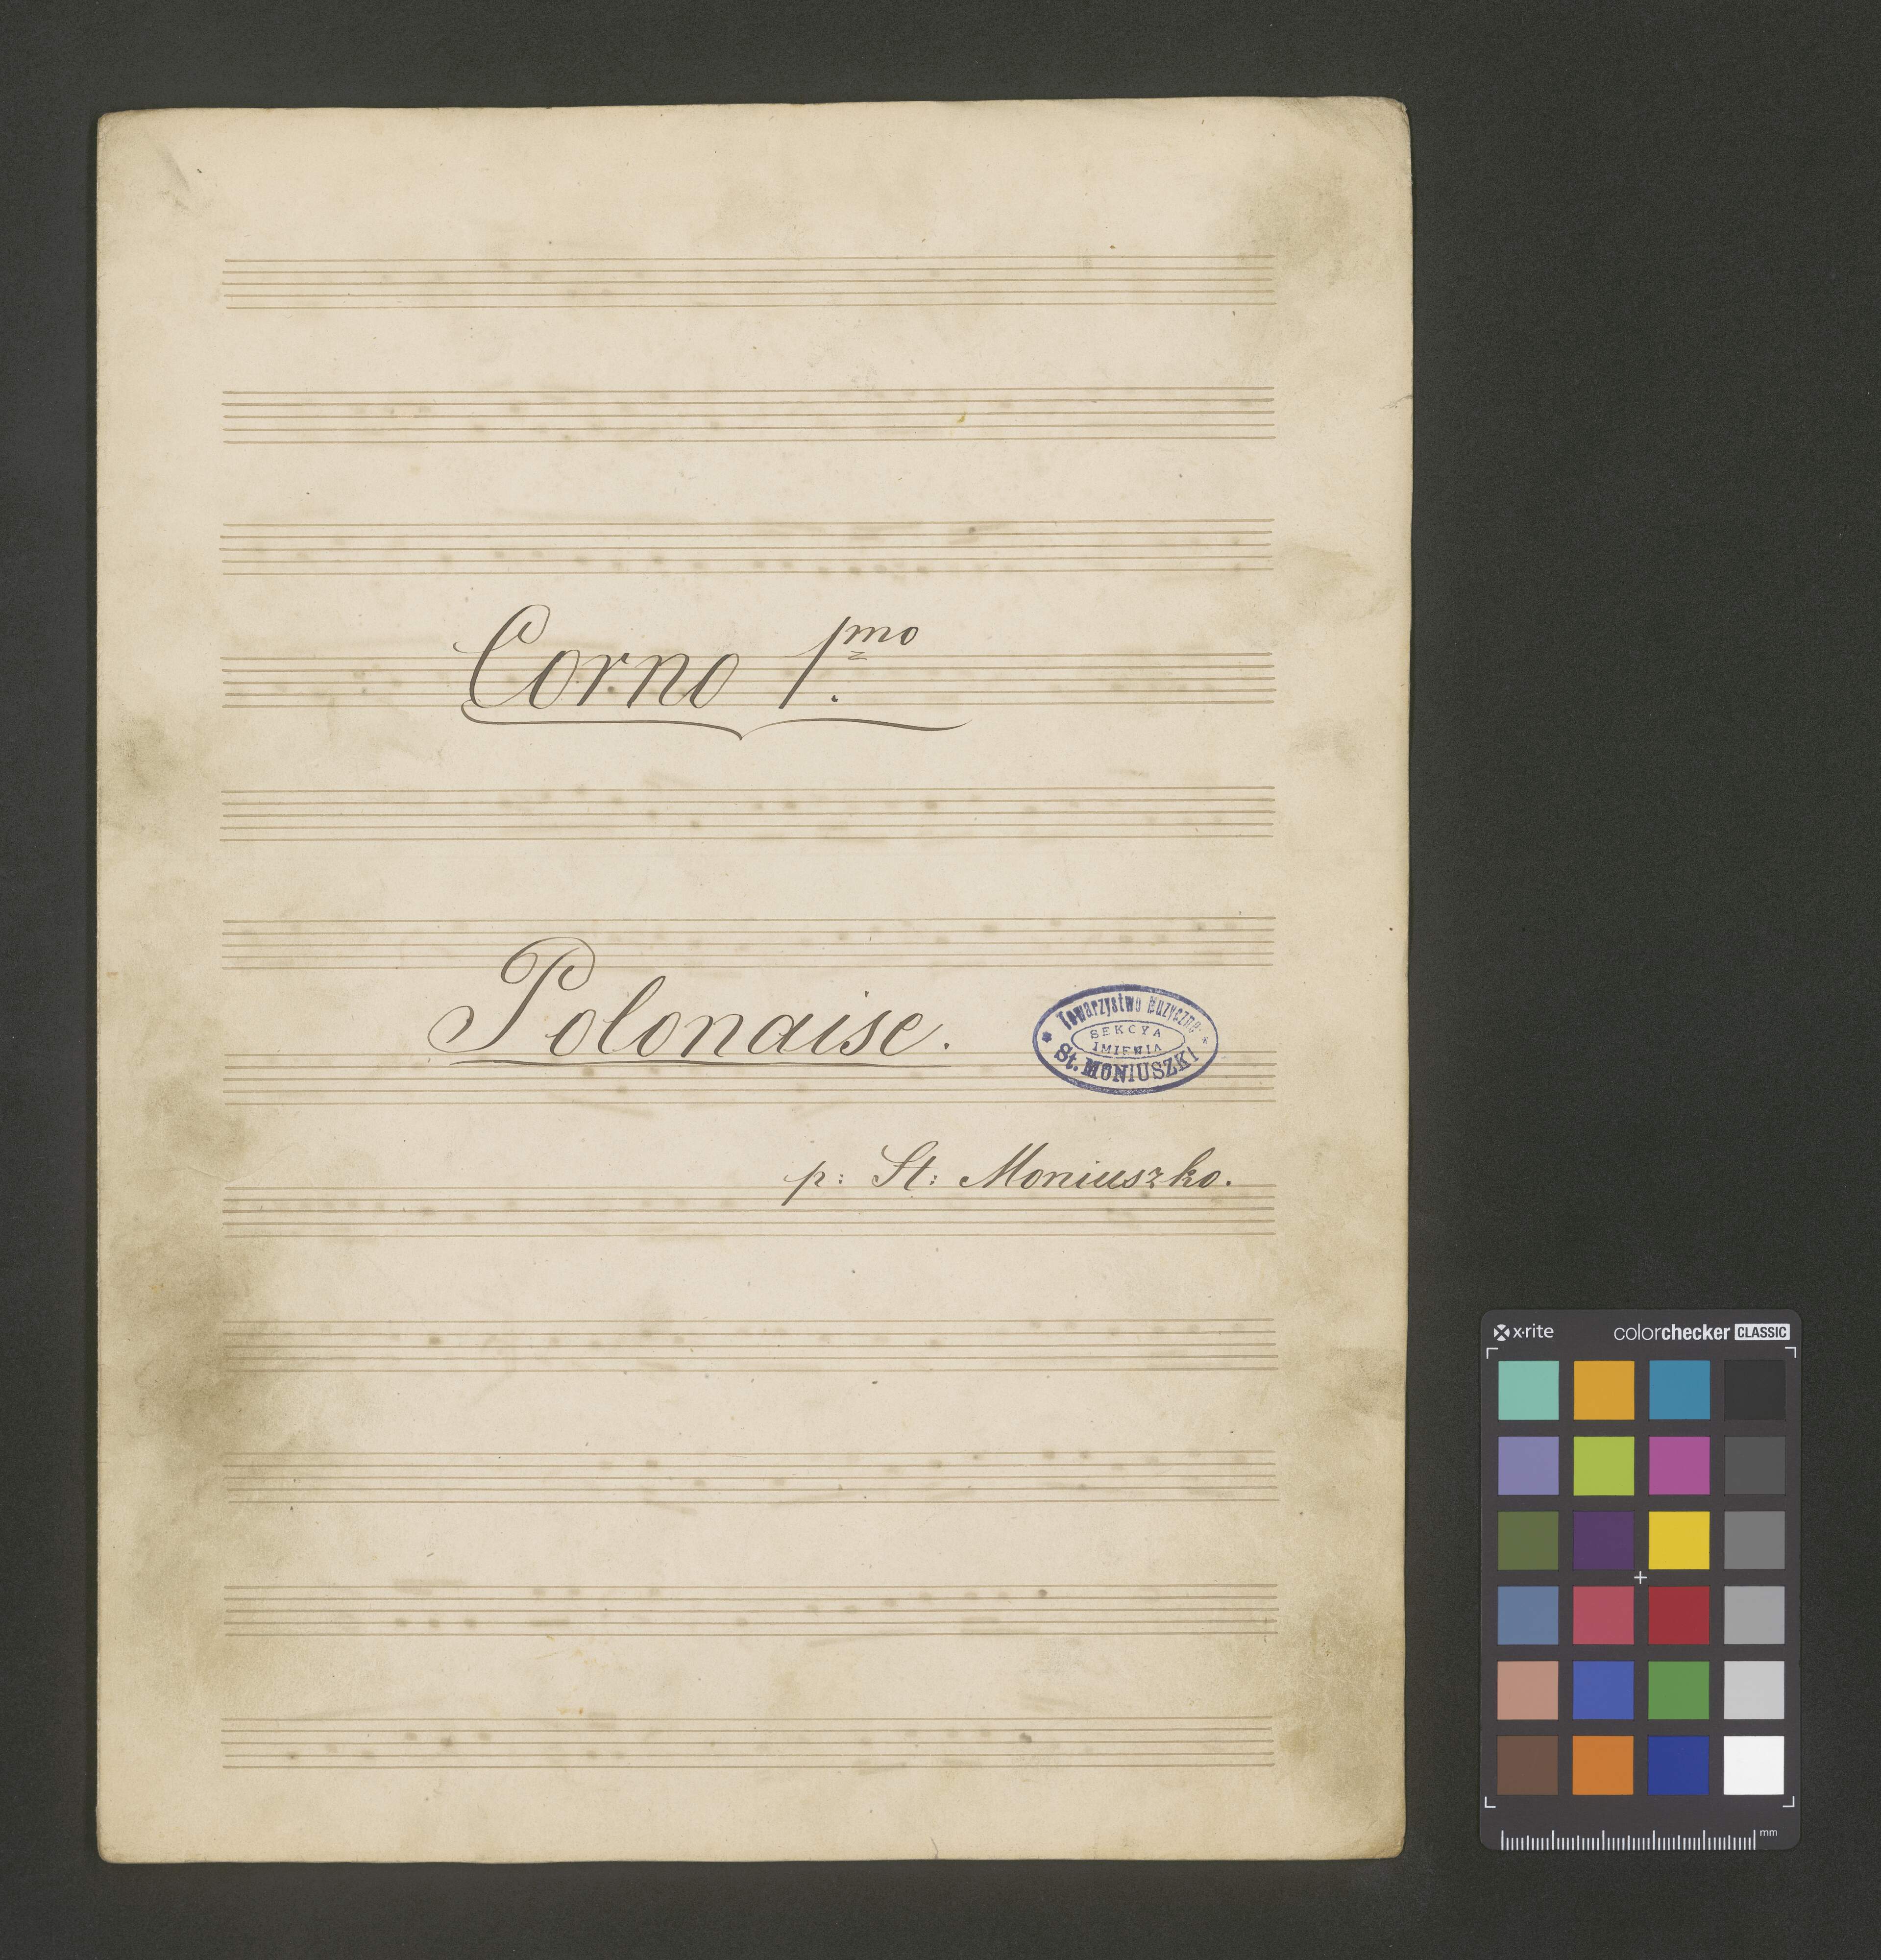 Corno 1.mo
Polonaise.
Towarzystwo Muzyczne
SEKCYA
IMIENIA
St. MONIUSZKI
p: St: Moniuszko.
x-rite
colorchecker CLASSIC
mm